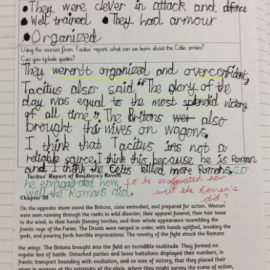 • They were clever in attack and defence
• Well trained • They had armour
• Organized
Using the sources from Tacitus' report, what can we learn about the Celtic armies?
Can you include quotes?
They weren't organized and overconfident,
Tacitus also said "The glory of the
day was equal to the most splendid victory
of all time". The Britons wer also
brought this wives on wagons.
I think that Tacitus ins not a
reliable source I think this because he is Roman
and I think the Celts killed more Romans, so
he exaggerated how
well the Romans did.
So he exaggerated how
well the Romans
did?
Tacitus' Report of Boudicca's Revolt
Chapter 30
On the opposite shore stood the Britons, close embodied, and prepared for action. Women
were seen running through the ranks in wild disorder; their apparel funeral; their hair loose
to the wind, in their hands flaming torches, and their whole appearance resembling the
frantic rage of the Furies. The Druids were ranged in order, with hands uplifted, invoking the
gods, and pouring forth horrible imprecations. The novelty of the fight struck the Romans
the wings. The Britons brought into the field an incredible multitude. They formed no
regular line of battle. Detached parties and loose battalions displayed their numbers, in
frantic transport bounding with exultation, and so sure of victory, that they placed their
wives in wagons at the extremity of the plain, where they might survey the scene of action,